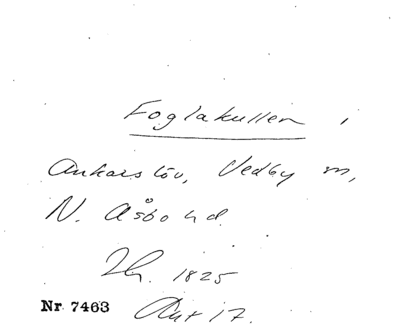 Foglakullen i
Ankarslöv, Vedby sn,
N. Åsbo hd.
1825
Akt 17.
Nr 7463